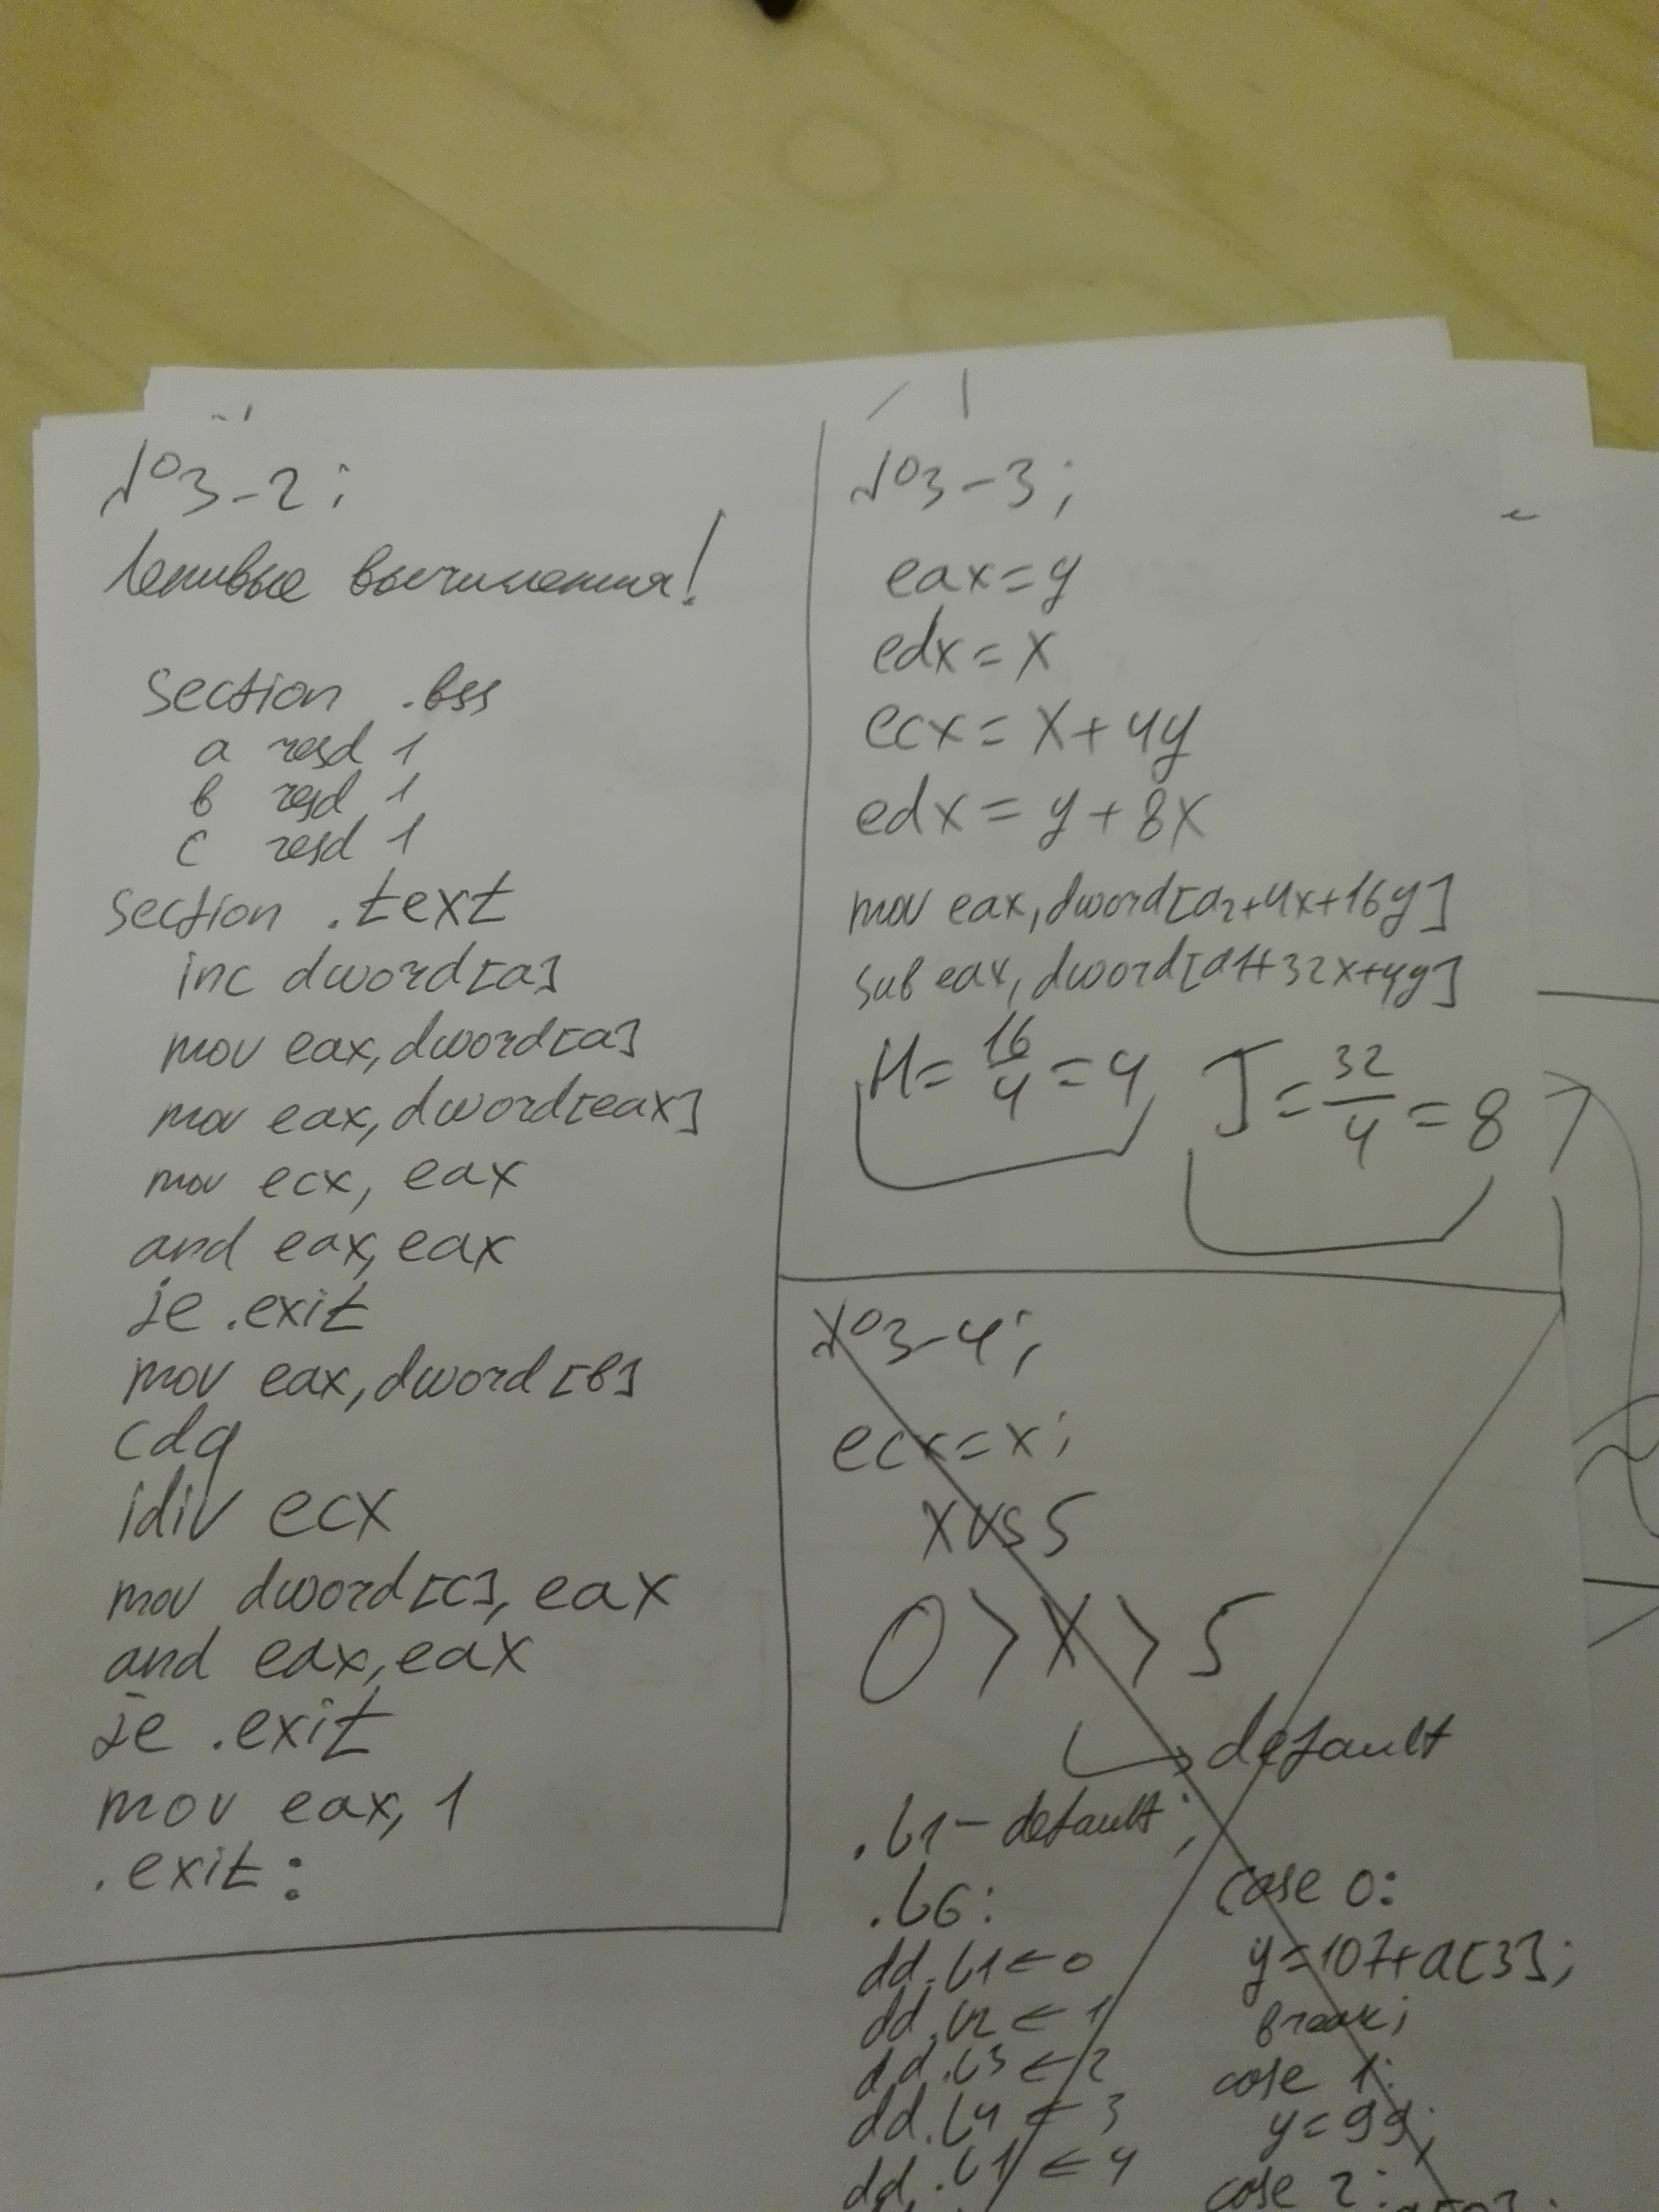 №3-2;
Ленивые вычисления!
section .bss
a resd 1
b resd 1
c resd 1
section .text
inc dword[a]
mov eax, dword[a]
mov eax, dword[eax]
mov ecx, eax
and eax, eax
je .exit
mov eax, dword[b]
cdq
idiv ecx
mov dword[c], eax
and eax, eax
je .exit
mov eax, 1
.exit:
№3-3;
eax=y
edx=x
ecx=x+4y
edx=y+8x
mov eax, dword[a2+4x+16y]
sub eax, dword[a1+32x+4y]
M=16/4=4 J=32/4=8
№3-4;
ecx=x;
x vs 5
0>x>5
default
.L1-default;
.L6:
dd .L1 ← 0
dd .L2 ← 1
dd .L3 ← 2
dd .L4 ← 3
dd .L1 ← 4
case 0:
y=107+a[3];
break;
case 1:
y=99;
case 2: